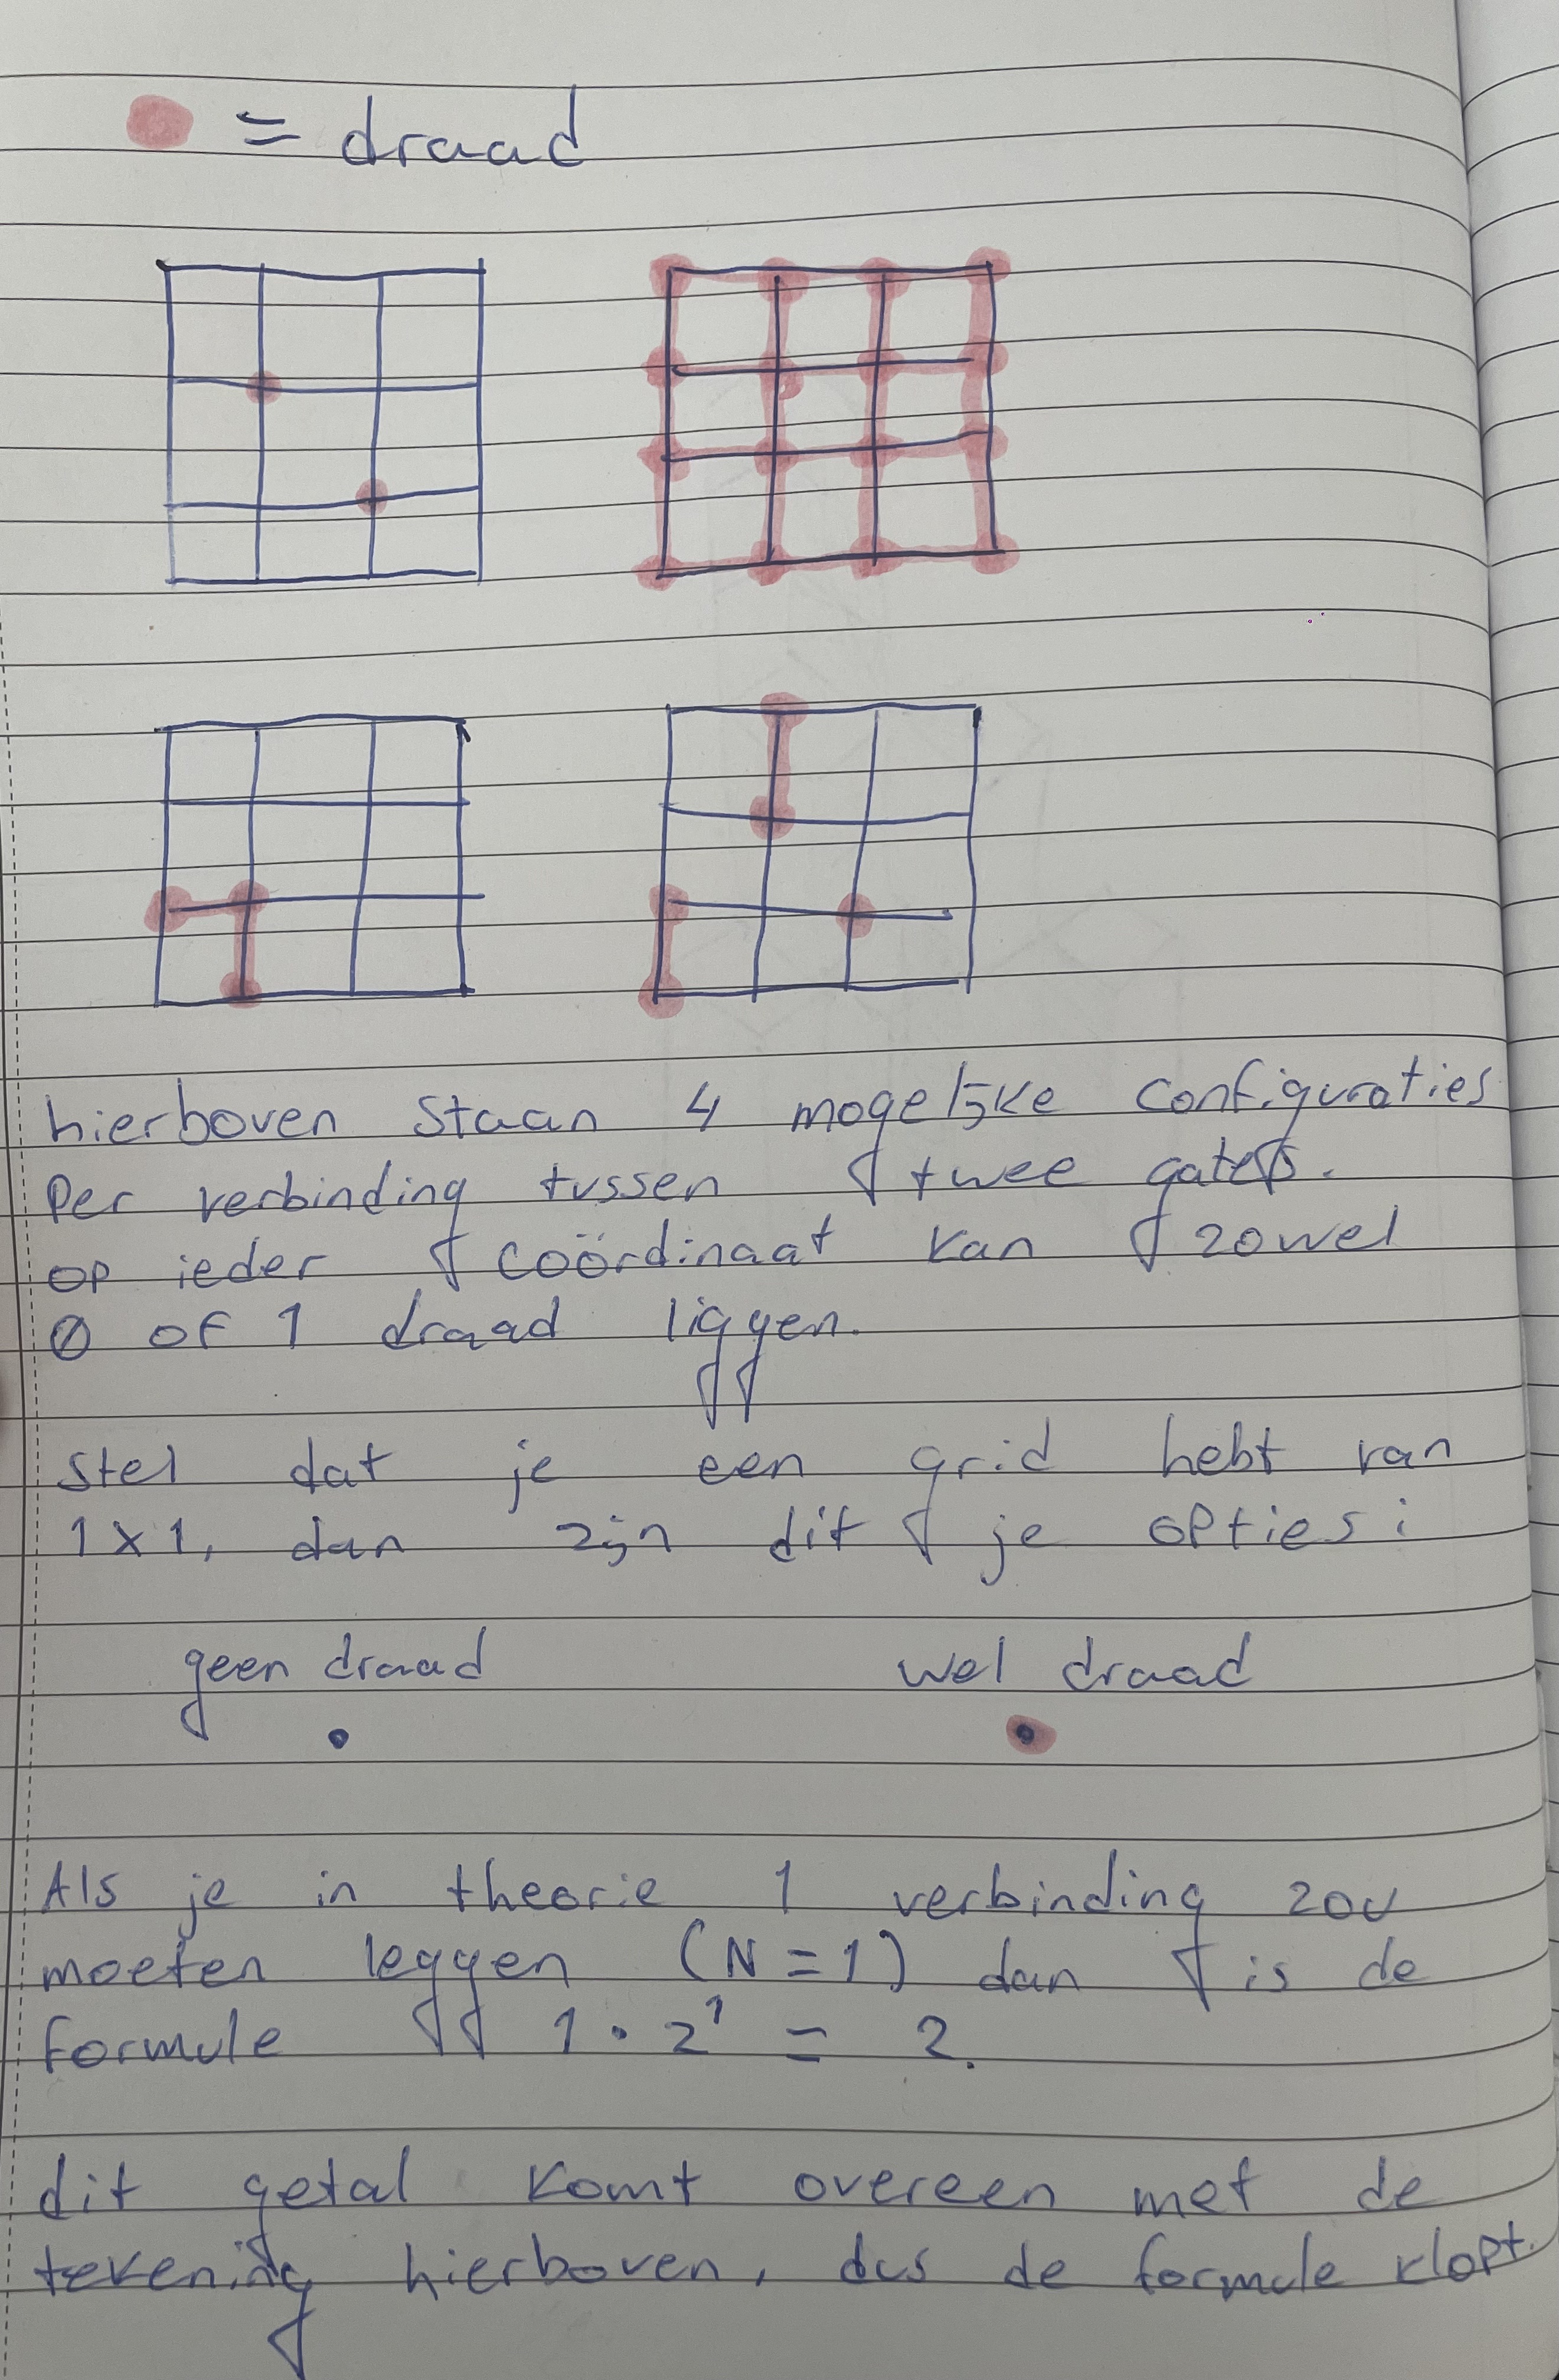 = draad
hierboven staan 4 mogelijke configuraties
Per verbinding tussen twee gates.
op ieder coördinaat kan zowel
0 of 1 draad liggen.
stel dat je een grid hebt van
1x1, dan zijn dit je opties:
geen draad wel draad
Als je in theorie 1 verbinding zou
moeten leggen (N=1) dan is de
formule 1 · 2¹ = 2.
dit getal komt overeen met de
tekening hierboven, dus de formule klopt.